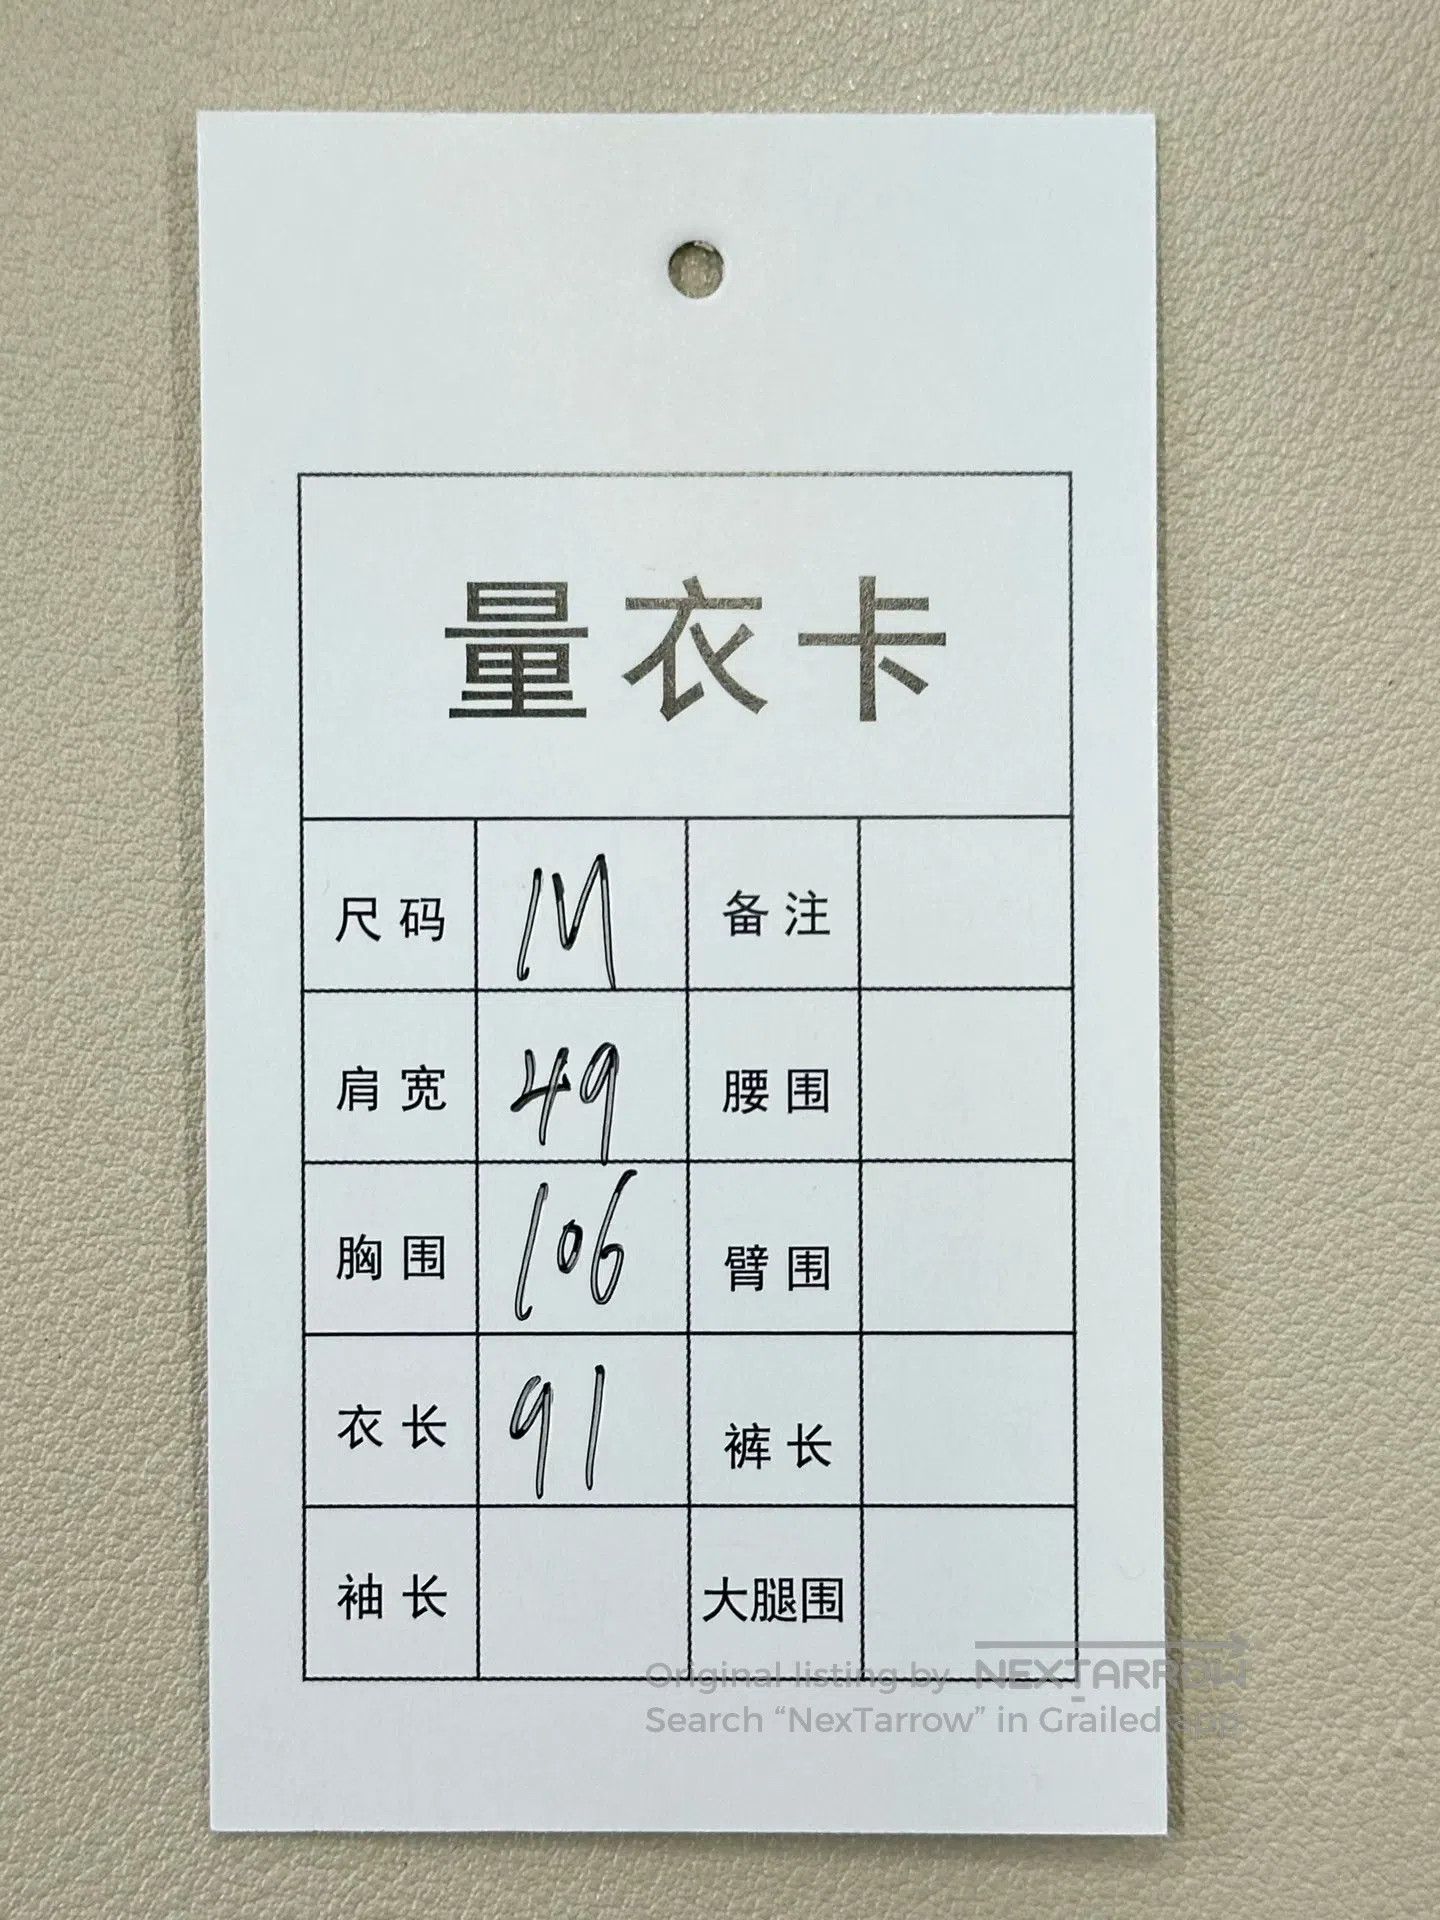 量衣卡
尺码 M 备注
肩宽 49 腰围
胸围 106 臂围
衣长 91 裤长
袖长 大腿围
Original listing by NEXTARROW
Search “NexTarrow” in Grailed app